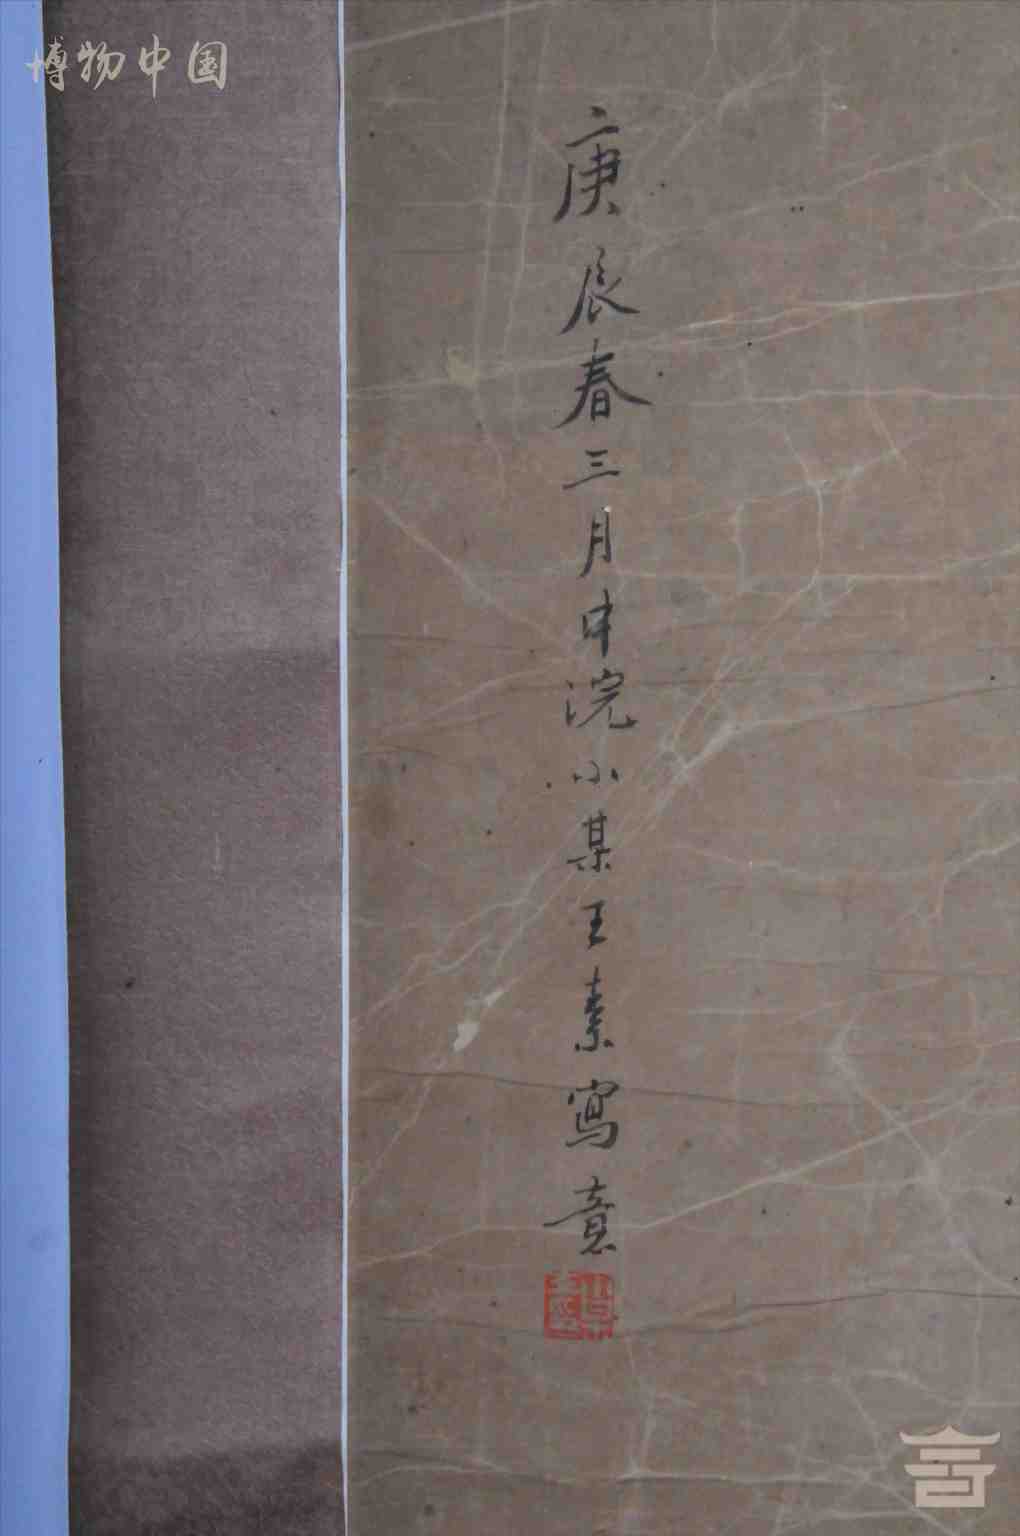 博物中国
庚辰春三月中浣小某王素寫意